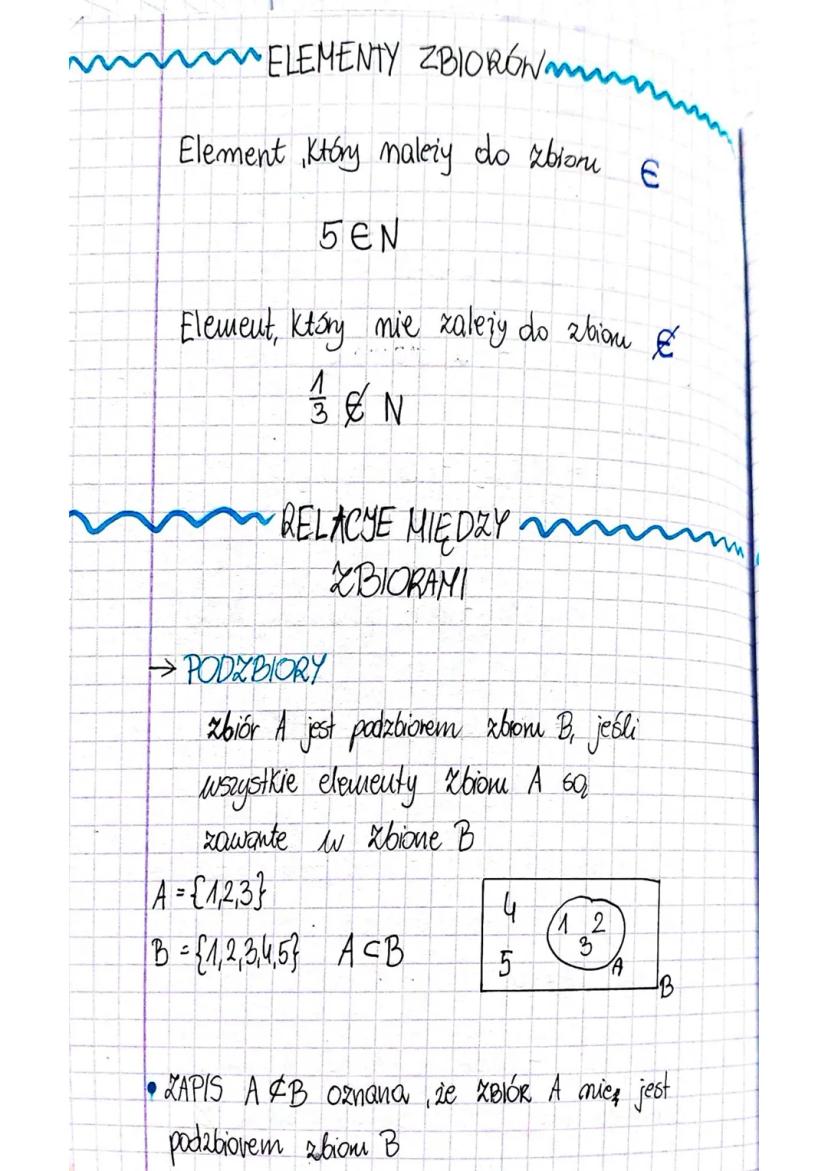 ELEMENTY ZBIORÓW
Element, który należy do zbioru ∈
5 ∈ N
Element, który nie zależy do zbioru ∉
1/3 ∉ N
RELACJE MIĘDZY
ZBIORAMI
→ PODZBIORY
zbiór A jest podzbiorem zbioru B, jeśli
wszystkie elementy zbioru A są
zawarte w zbiorze B
A = {1,2,3}
B = {1,2,3,4,5} A ⊂ B
4 1 2
5 3 A
B
• ZAPIS A ⊄ B oznacza, że ZBIÓR A nie jest
podzbiorem zbioru B